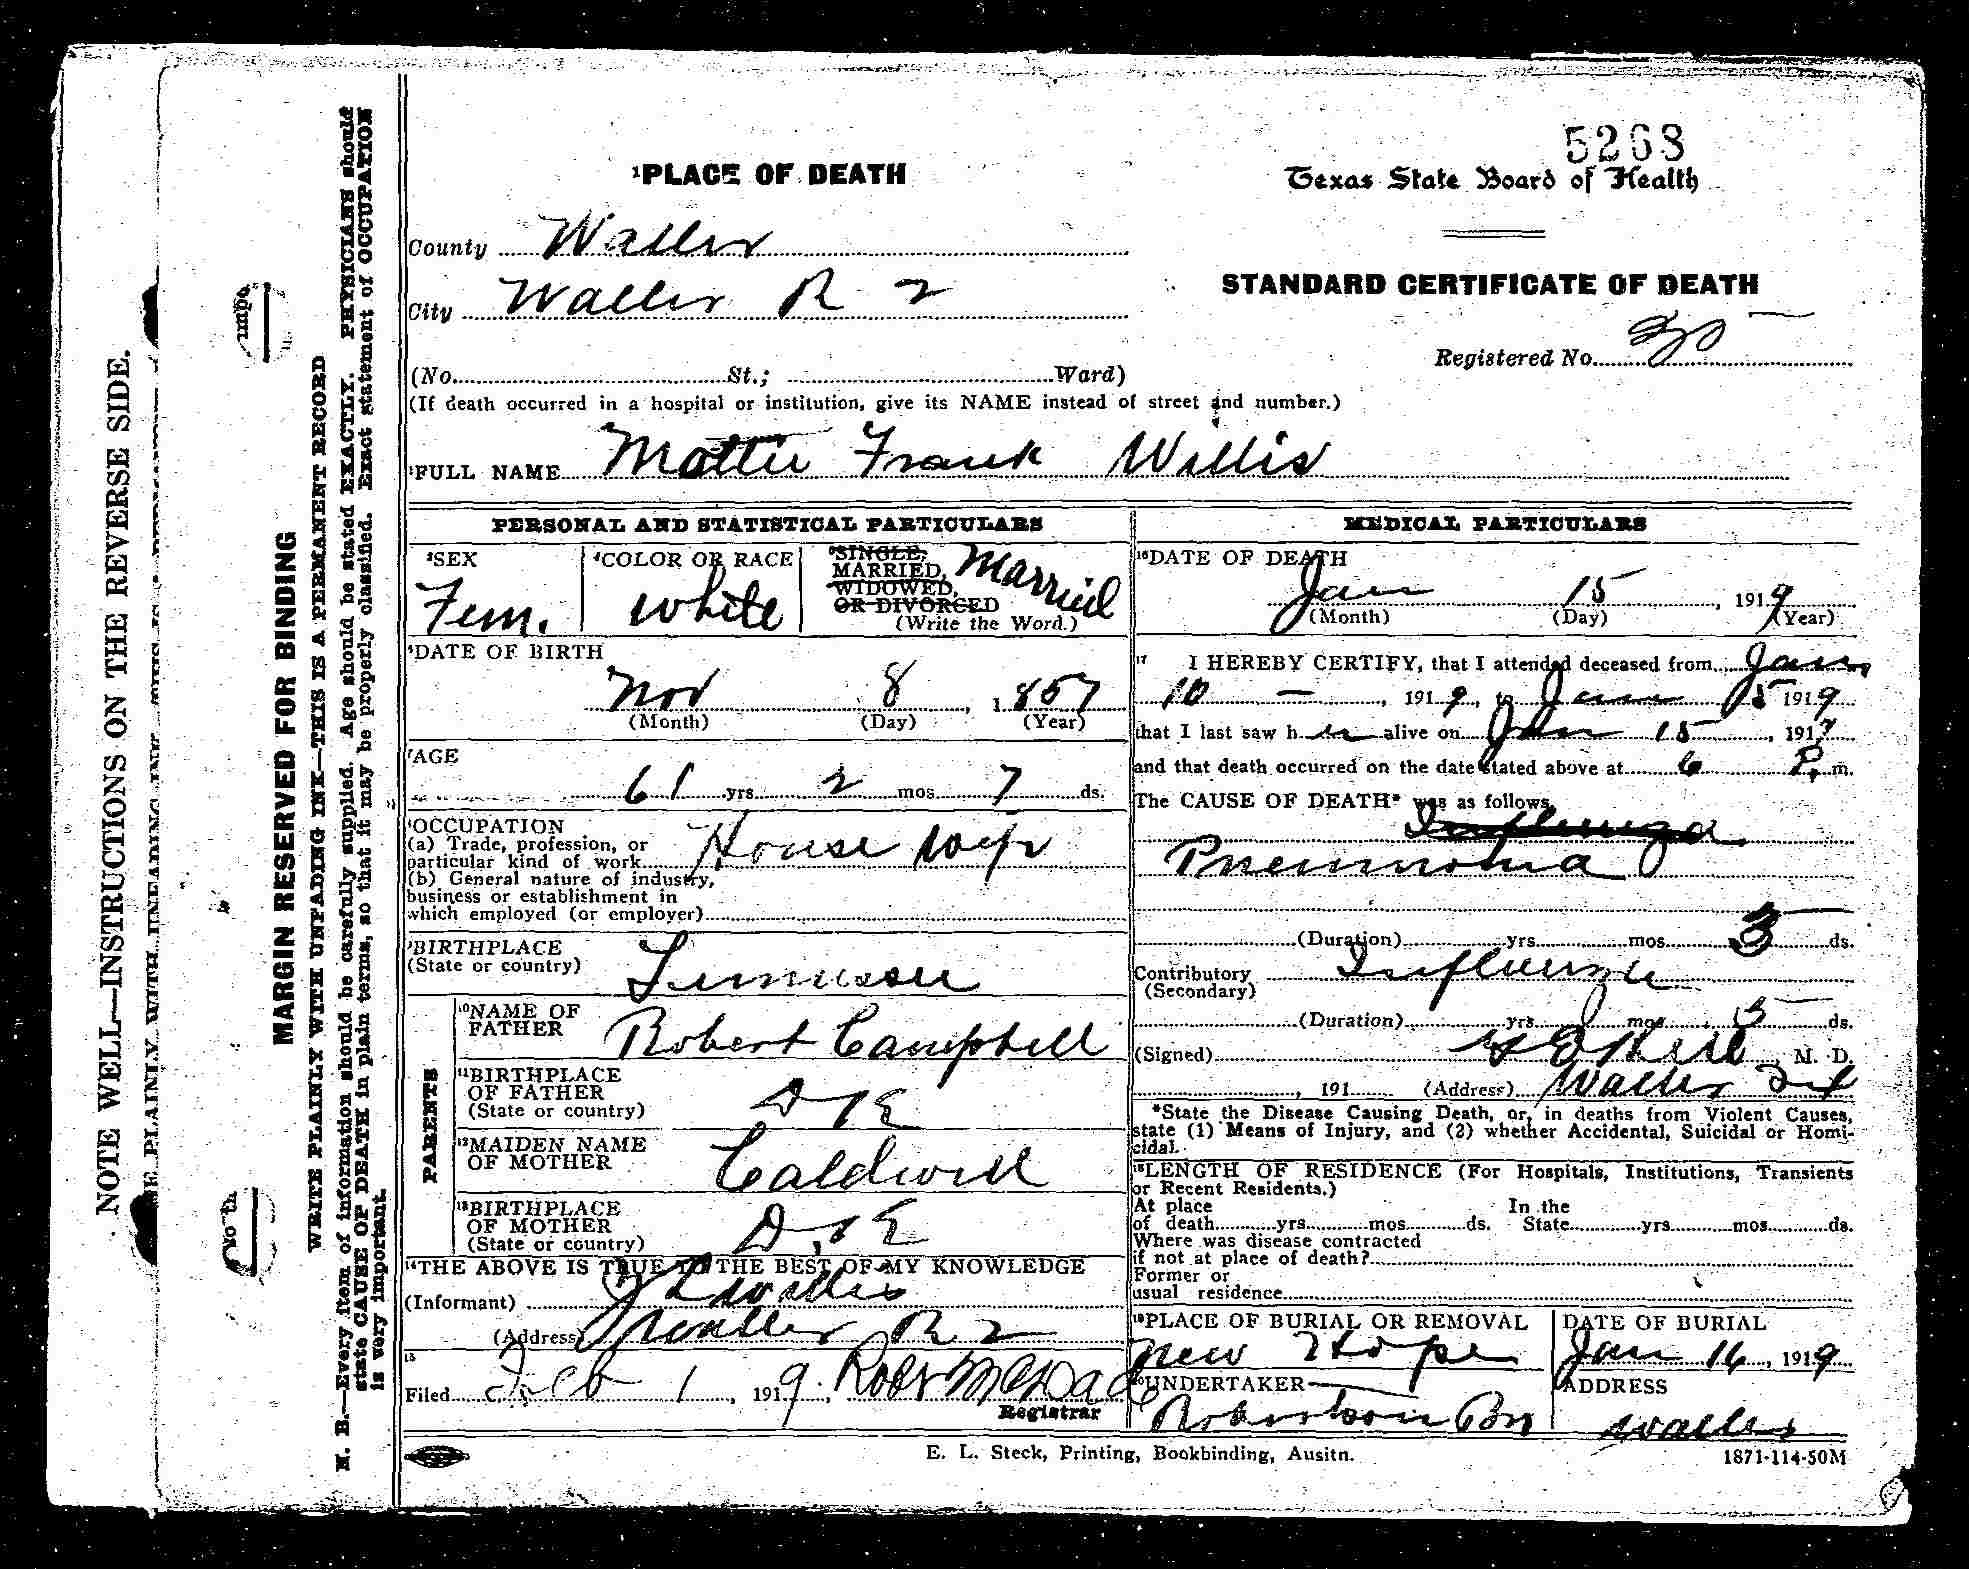 5268
Texas State Board of Health
¹PLACE OF DEATH
County Waller
City Waller R 2
STANDARD CERTIFICATE OF DEATH
Registered No.
(No. St.; Ward)
(If death occurred in a hospital or institution, give its NAME instead of street and number.)
²FULL NAME Mattie Frank Willis
PERSONAL AND STATISTICAL PARTICULARS
³SEX
Fem.
⁴COLOR OR RACE
White
⁵SINGLE,
MARRIED,
WIDOWED,
OR DIVORCED
(Write the Word.)
Married
⁶DATE OF BIRTH
Nov 8, 1857
(Month) (Day) (Year)
⁷AGE
61 yrs. 2 mos. 7 ds.
⁸OCCUPATION
(a) Trade, profession, or
particular kind of work House
(b) General nature of industry,
business or establishment in
which employed (or employer)
⁹BIRTHPLACE
(State or country)
PARENTS
¹⁰NAME OF
FATHER Robert Campbell
¹¹BIRTHPLACE
OF FATHER
(State or country) D K
¹²MAIDEN NAME
OF MOTHER Caldwell
¹³BIRTHPLACE
OF MOTHER
(State or country) D. K
¹⁴THE ABOVE IS TRUE TO THE BEST OF MY KNOWLEDGE
(Informant) Willis
(Address) Waller R 2
¹⁵
Filed Feb 1, 1919. Robt McDade
Registrar
MEDICAL PARTICULARS
¹⁶DATE OF DEATH
Jan 15, 1919
(Month) (Day) (Year)
¹⁷ I HEREBY CERTIFY, that I attended deceased from Jan
10 —, 1919, to Jan 15 1919
that I last saw her alive on Jan 15, 1919
and that death occurred on the date stated above at 6 P. m.
The CAUSE OF DEATH* was as follows.
Influenza
Pneumonia
(Duration) yrs. mos. 3 ds.
Contributory Influenza
(Secondary)
(Duration) yrs. mos. 5 ds.
(Signed) M. D.
, 191 (Address) Waller Tex
*State the Disease Causing Death, or, in deaths from Violent Causes,
state (1) Means of Injury, and (2) whether Accidental, Suicidal or Homi-
cidal.
¹⁸LENGTH OF RESIDENCE (For Hospitals, Institutions, Transients
or Recent Residents.)
At place In the
of death yrs. mos. ds. State yrs. mos. ds.
Where was disease contracted
if not at place of death?
Former or
usual residence
¹⁹PLACE OF BURIAL OR REMOVAL
New Hope
DATE OF BURIAL
Jan 16, 1919
²⁰UNDERTAKER
Robertson Bro
ADDRESS
Waller
E. L. Steck, Printing, Bookbinding, Ausitn.
1871-114-50M
NOTE WELL—INSTRUCTIONS ON THE REVERSE SIDE.
MARGIN RESERVED FOR BINDING
WRITE PLAINLY WITH UNFADING INK—THIS IS A PERMANENT RECORD
N. B.—Every item of information should be carefully supplied. Age should be stated EXACTLY. PHYSICIANS should
state CAUSE OF DEATH in plain terms, so that it may be properly classified. Exact statement of OCCUPATION
is very important.